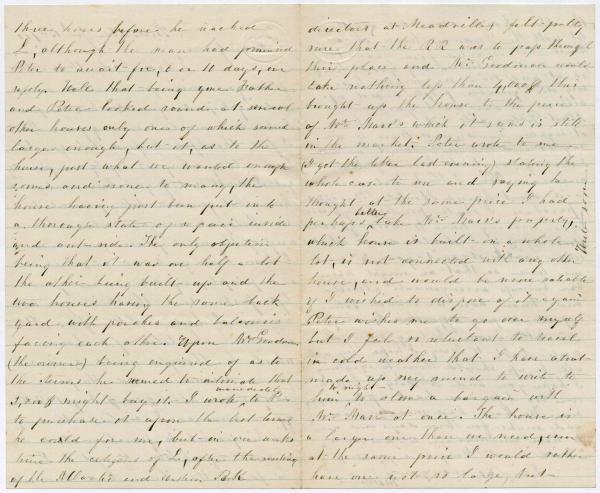 three hours before he reached
L. although the man had promised
Peter to await for, 6 or 10 days, our
reply. Well that being gone Father
and Peter looked round at several
other houses only one of which seemed
large enough, but it, as to the
house, just what we wanted enough
rooms and none to many, the
house having just been put into
a thorough state of repair inside
and out-side. The only objection
being that it was one half a lot
the other being built-up and the
two houses having the same back
yard with porches and balconies
facing each other. Upon Mr. Goodman
(the owner) being enquired of as to
the terms he seemed to intimate that
might buy it. I wrote immediately to P.
to purchase it upon the best terms
he could for me, but in one weeks
time the citizens of L, after the meeting
of the Atlantic and Park
directors at Meadville, felt pretty
sure that the R R was to pass through
their place and Mr. Goodman would
take nothing less than this
brought up the house to the price
of Mr. Marr's which it seems is still
in the market. Peter wrote to me
(I got the letter last evening) stating the
whole case to me and saying he
thought at the same price I had
perhaps better take Mr. Marr's property,
which house is built on a whole
lot, is not connected with any other
house, and would be more salable
if I wished to dispose of it again
Peter wishes me to go over myself
but I feel so reluctant to travel
in cold weather that I have about
made up my mind to write to
him to night to close a bargain with
Mr. Marr at once. The house is
a larger one than we need, even
at the same price I would rather
have one not so large but